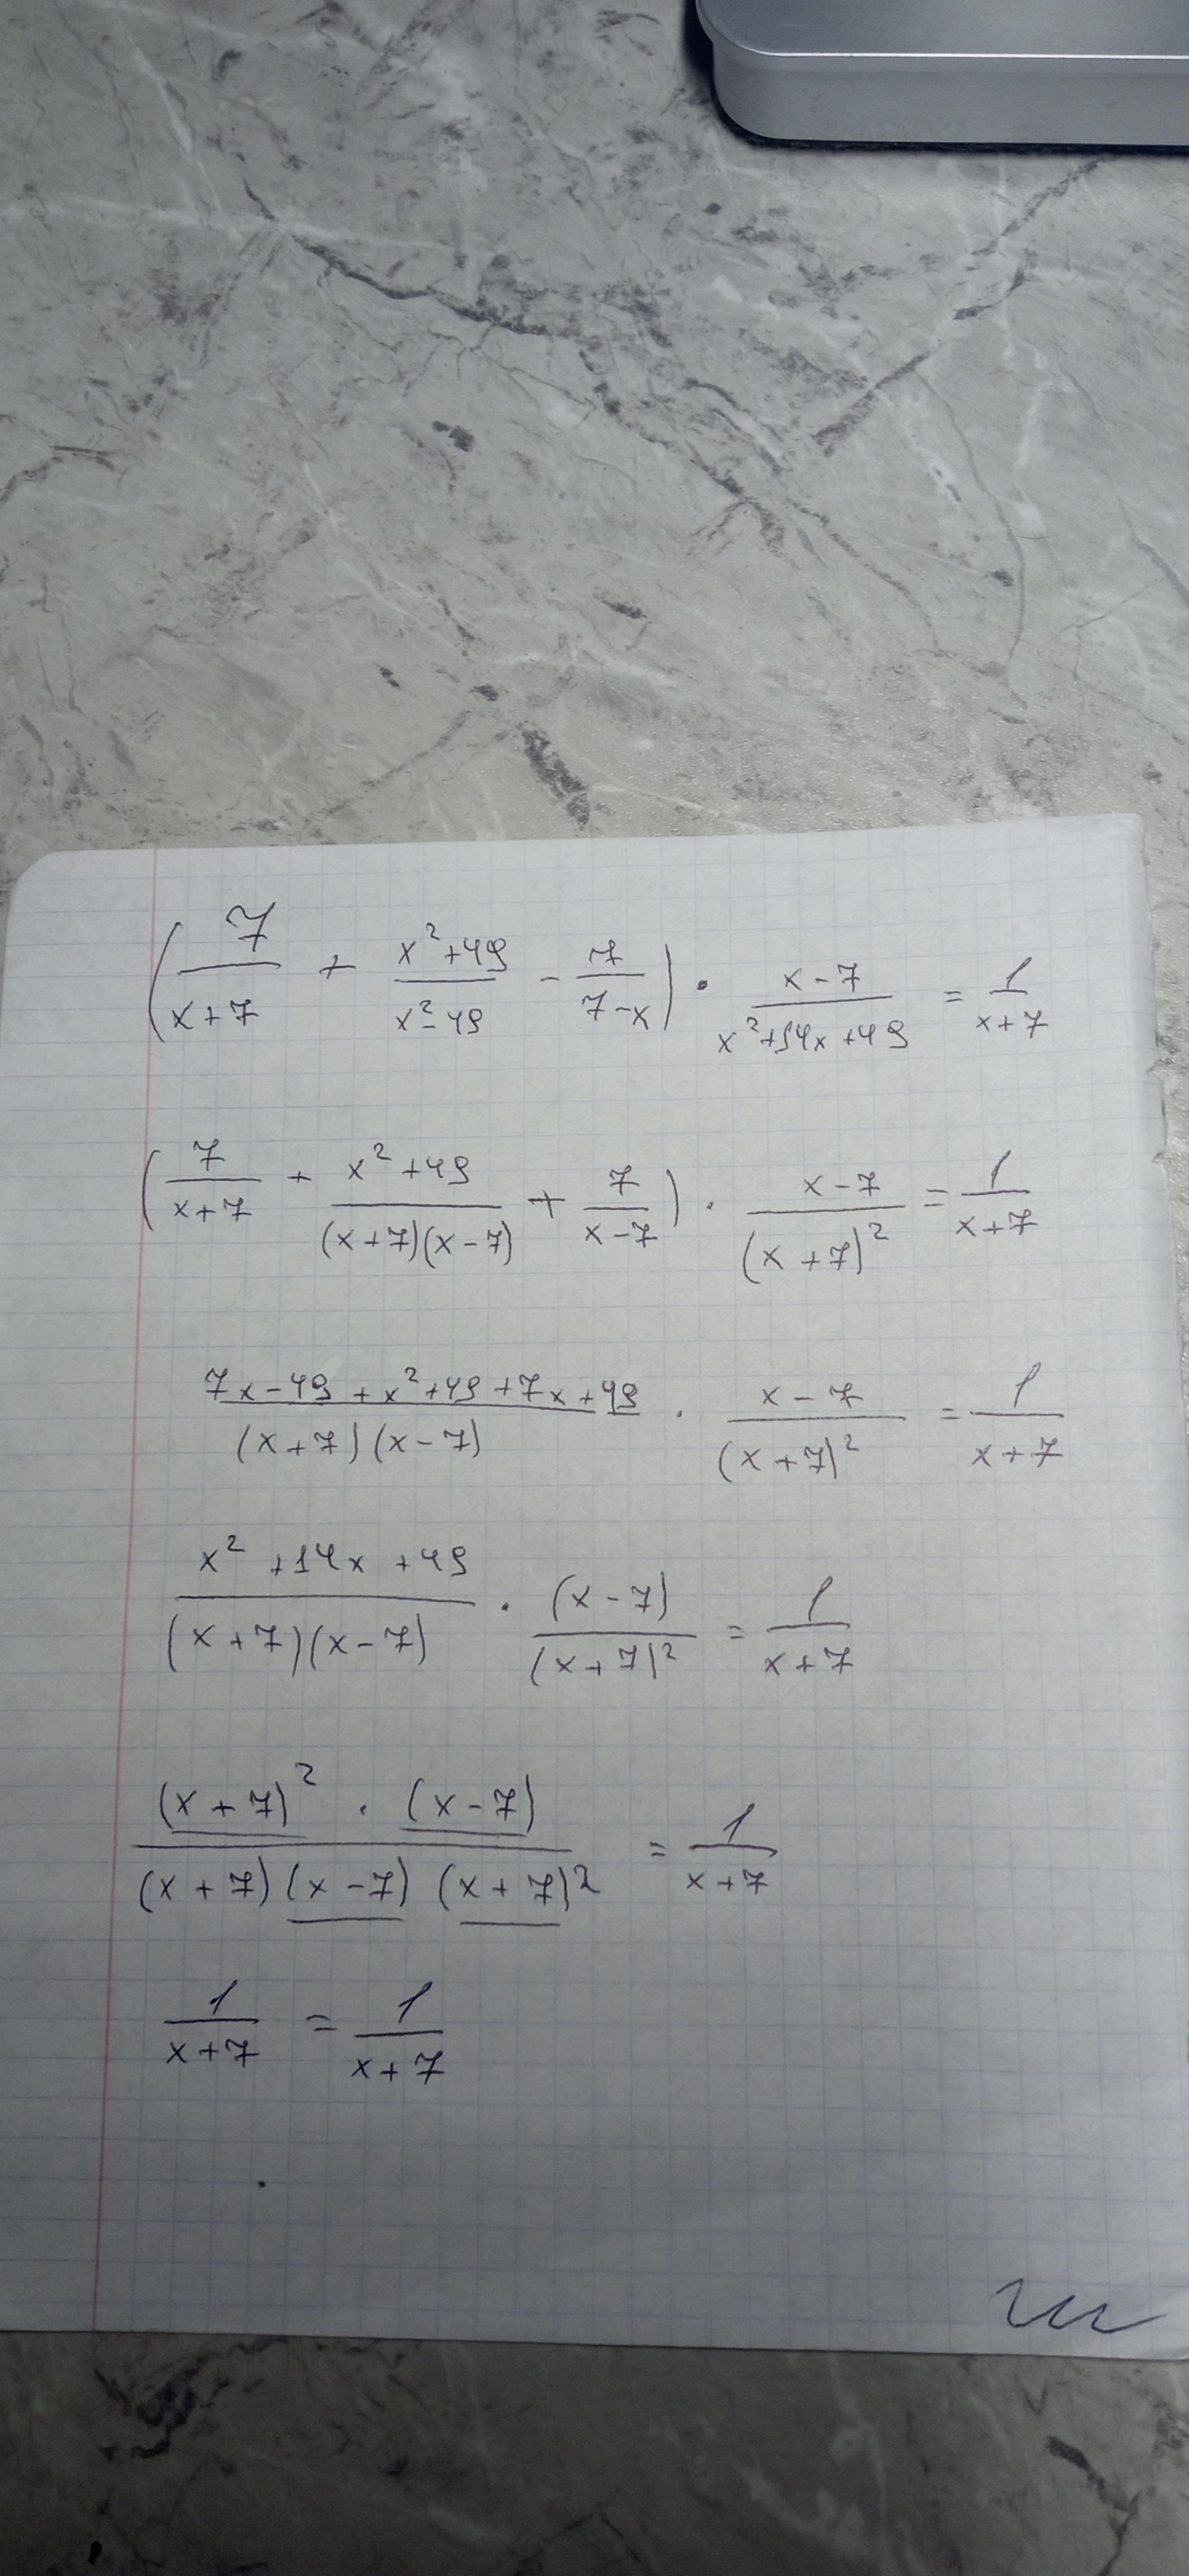 (7/(x+7) + (x²+49)/(x²-49) - 7/(7-x)) · (x-7)/(x²+14x+49) = 1/(x+7)
(7/(x+7) + (x²+49)/((x+7)(x-7)) + 7/(x-7)) · (x-7)/(x+7)² = 1/(x+7)
(7x-49+x²+49+7x+49)/((x+7)(x-7)) · (x-7)/(x+7)² = 1/(x+7)
(x²+14x+49)/((x+7)(x-7)) · (x-7)/(x+7)² = 1/(x+7)
((x+7)² · (x-7))/((x+7)(x-7)(x+7)²) = 1/(x+7)
1/(x+7) = 1/(x+7)